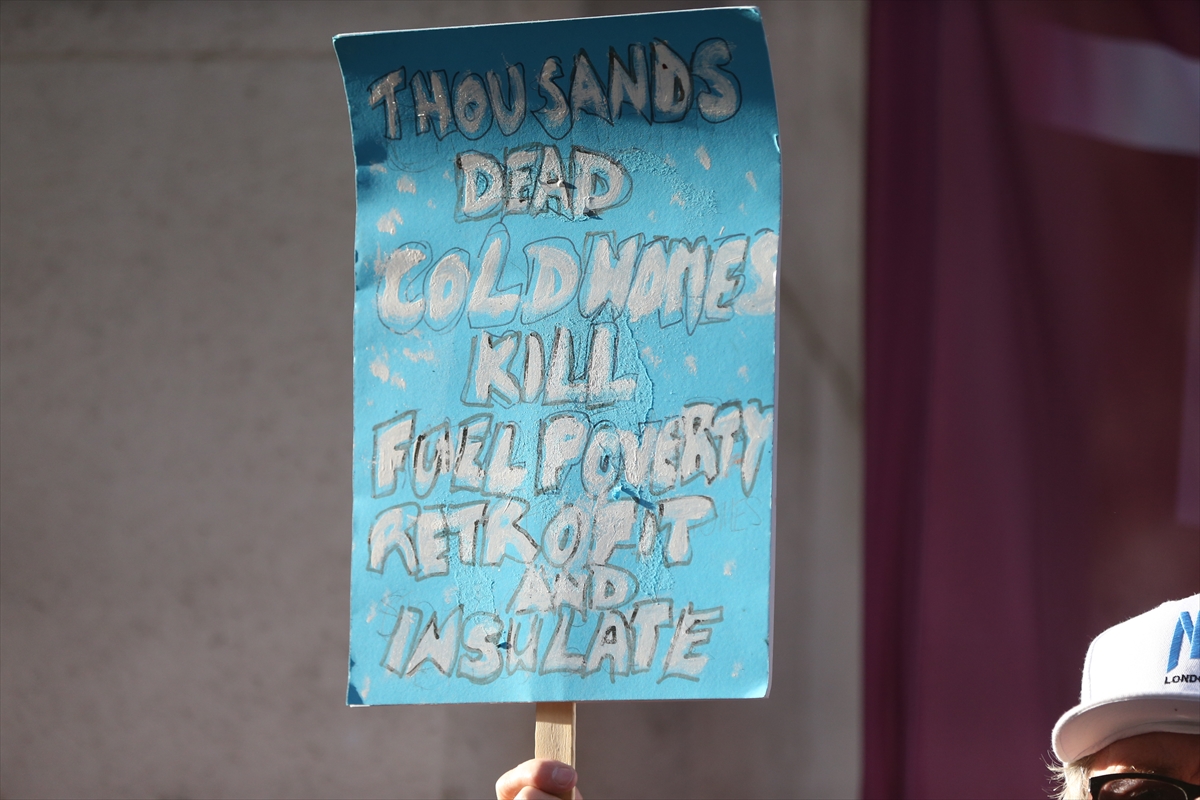 THOUSANDS
DEAD
COLD HOMES
KILL
FUEL POVERTY
RETROFIT
AND
INSULATE